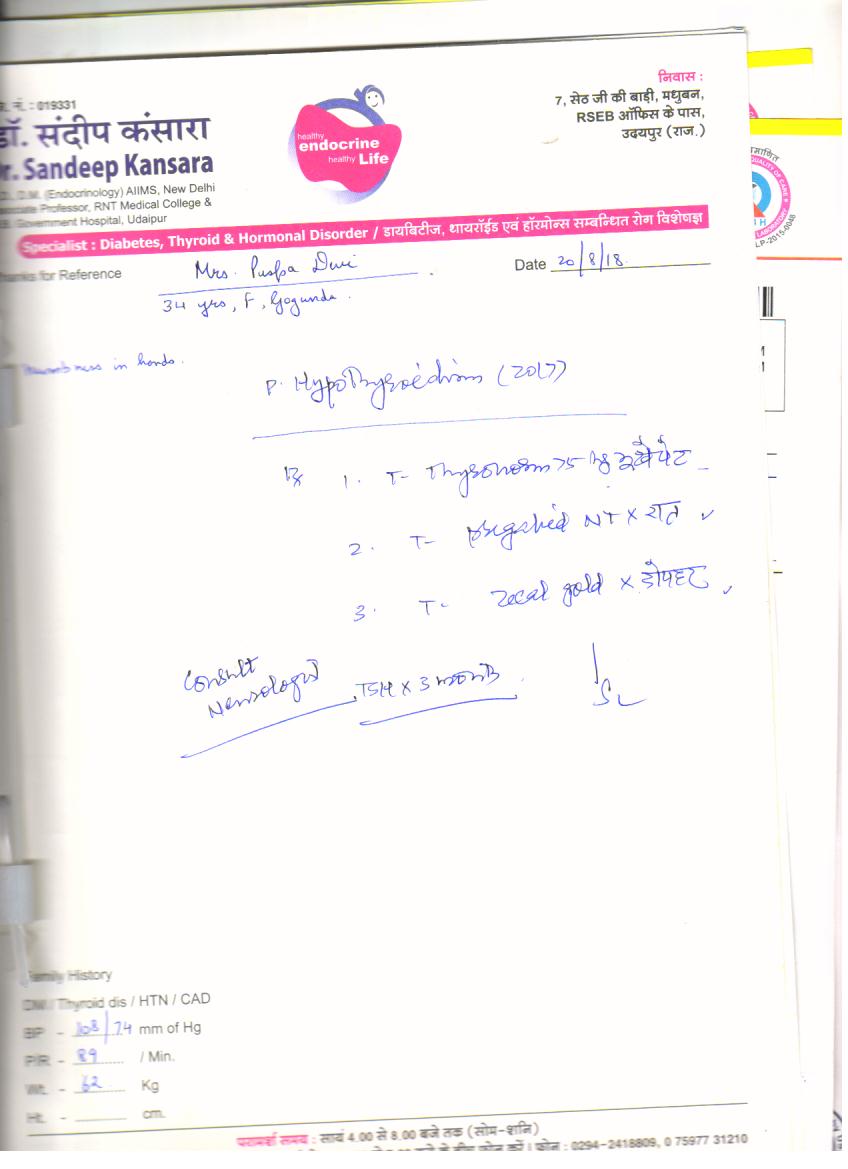 नं. : 019331
डॉ. संदीप कंसारा
Dr. Sandeep Kansara
D.M. (Endocrinology) AIIMS, New Delhi
Professor, RNT Medical College &
Government Hospital, Udaipur
healthy
endocrine
healthy Life
निवास :
7, सेठ जी की बाड़ी, मधुबन,
RSEB ऑफिस के पास,
उदयपुर (राज.)
Specialist : Diabetes, Thyroid & Hormonal Disorder / डायबिटीज, थायरॉईड एवं हॉरमोन्स सम्बन्धित रोग विशेषज्ञ
Thanks for Reference Mrs. Puspa Devi Date 20/8/18
34 yrs, F, Gogunda
in hands.
P. Hypothyroidism (2017)
Rx 1. T- Thyronorm 75
2. T- NT x रात
3. T- zecal gold x दोपहर
Consult
Neurologist TSH x 3 month
Family History
DM / Thyroid dis / HTN / CAD
BP - 108/74 mm of Hg
P/R - 89 / Min.
Wt. - 62 Kg
Ht. - cm.
परामर्श समय : सायं 4.00 से 8.00 बजे तक (सोम-शनि)
फोन करें । फोन : 0294-2418809, 0 75977 31210
QUALITY OF CARE
LABORATORY
LP-2015-0048